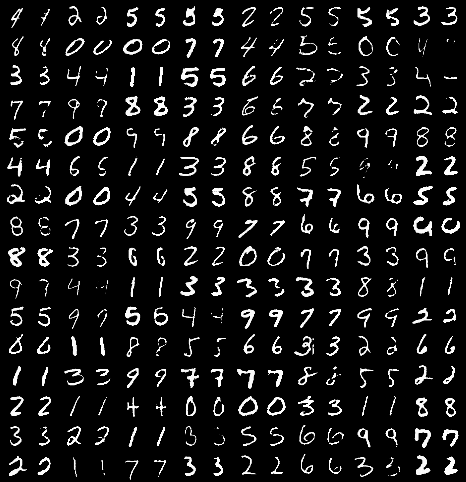 4 4 2 2 5 5 5 5 2 2 5 5 5 5 3 3
8 8 0 0 0 0 7 7 4 4 5 5 0 0 4
3 3 4 4 1 1 5 5 6 6 2 2 3 3 4
7 7 9 9 8 8 3 3 6 6 7 7 2 2 2 2
5 5 0 0 9 9 8 8 6 6 8 8 9 9 8 8
4 4 6 6 1 1 3 3 8 8 5 5 2 2
2 2 0 0 4 4 5 5 8 8 7 7 6 6 5 5
8 8 7 7 3 3 9 9 7 7 6 6 9 9 0 0
8 8 3 3 6 6 2 2 0 0 9 9 3 3 9 9
9 9 4 1 1 3 3 3 3 3 3 8 8 1 1
5 5 9 9 5 5 4 4 9 9 7 7 9 9 2 2
6 6 1 1 8 8 5 5 6 6 3 3 2 2 6 6
1 1 3 3 9 9 7 7 7 7 8 8 5 5 2 2
2 2 1 1 4 4 0 0 0 0 3 3 1 1 8 8
3 3 2 2 1 1 3 3 5 5 6 6 9 9 7 7
2 2 1 1 7 7 3 3 2 2 6 6 3 3 2 2